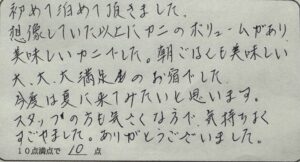 初めて泊めて頂きました。
想像していた以上にカニのボリュームがあり
美味しいカニでした。朝ごはんも美味しい
大、大、大満足のお宿でした
今度は夏に来てみたいと思います。
スタッフの方も気さくな方で、気持ちよく
すごせました。ありがとうございました。
10点満点で 10 点